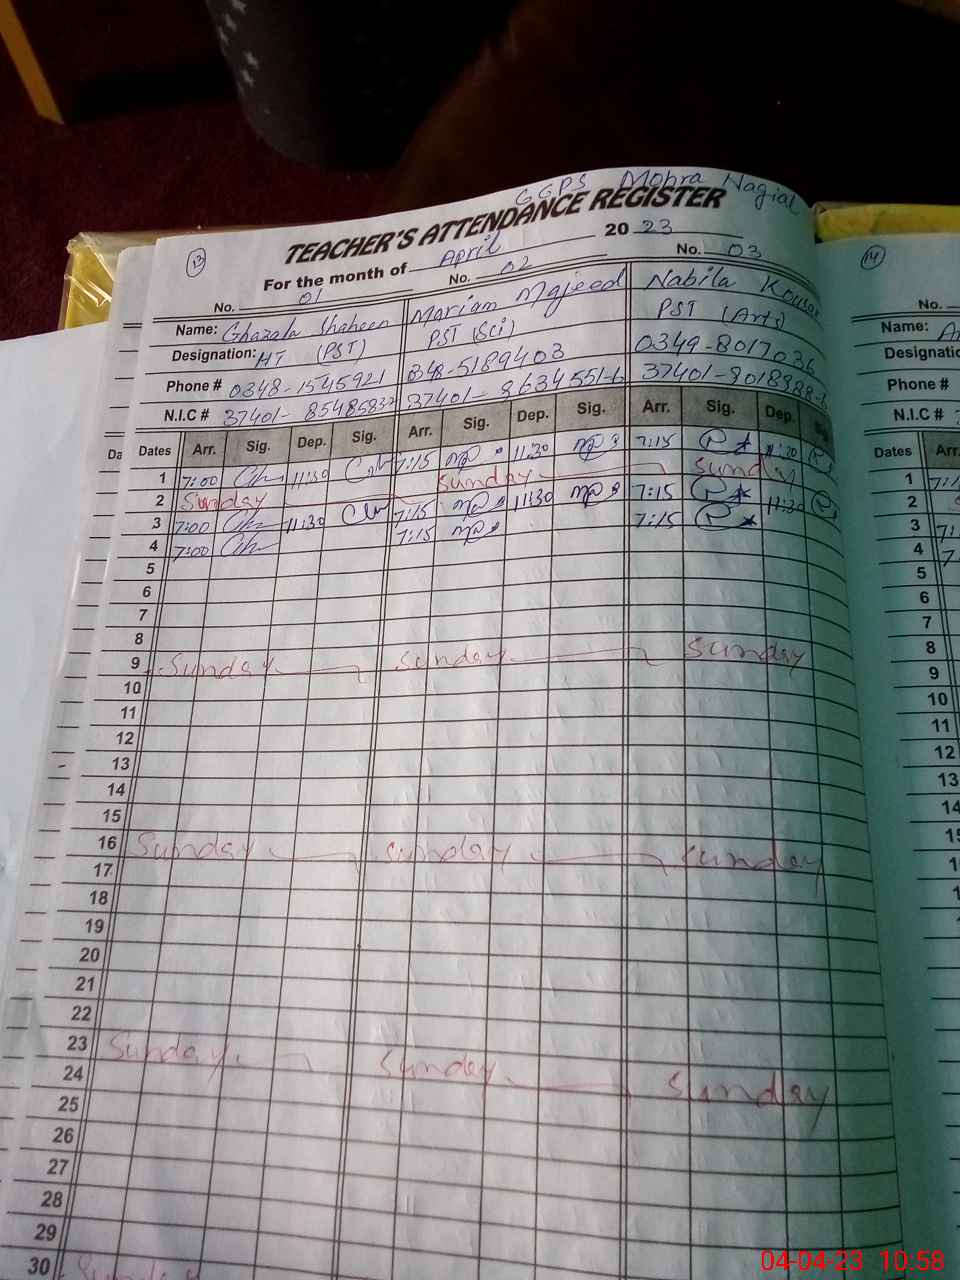 GGPS Mohra Nagial
TEACHER'S ATTENDANCE REGISTER
13 For the month of April 20 23
No. 01 No. 02 No. 03
Name: Ghazala Shaheen Mariam Majeed Nabila Kousar
Designation: HT (PST) PST (Sci) PST (Arts)
Phone # 0348-1545921 0348-5189403 0349-8017036
N.I.C # 37401- 8548583-2 37401- 8634551-6 37401-8018988-6
Dates Arr. Sig. Dep. Sig. Arr. Sig. Dep. Sig. Arr. Sig. Dep.
1 7:00 11:30 7:15 11:30 7:15 11:30
2 Sunday Sunday Sunday
3 7:00 11:30 7:15 11:30 7:15 11:30
4 7:00 7:15 7:15
5
6
7
8
9 Sunday Sunday Sunday
10
11
12
13
14
15
16 Sunday Sunday Sunday
17
18
19
20
21
22
23 Sunday Sunday Sunday
24
25
26
27
28
29
30 Sunday
14
No.
Name:
Designatio
Phone #
N.I.C #
Dates Arr.
1
2
3
4
5
6
7
8
9
10
11
12
13
14
04-04-23 10:58